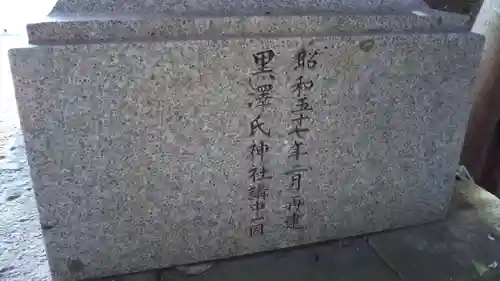 昭和五十七年二月再建
黒澤氏神社講中一同